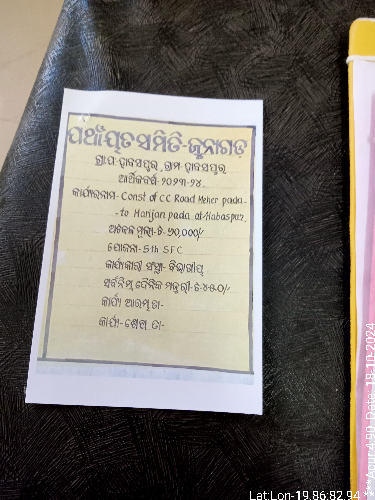 ପଞ୍ଚାୟତ ସମିତି-ଜୁନାଗଡ଼
ଗ୍ରା.ପ-ହାବସପୁର, ଗ୍ରାମ-ହାବସପୁର
ଆର୍ଥିକବର୍ଷ-୨୦୨୩-୨୪.
କାର୍ଯ୍ୟରନାମ- Const of CC Road Meher pada-
-to Harijan pada at-Habaspur.
ଅଟକଳ ମୂଲ୍ୟ-ଟ-୫୦,000/-
ଯୋଜନା-5th SFC
କାର୍ଯ୍ୟକାରୀ ସଂସ୍ଥା- ବିଭାଗୀୟ
ସର୍ବନିମ୍ନ ଦୈନିକ ମଜୁରୀ-ଟ-୪୫0/-
କାର୍ଯ୍ୟ ଆରମ୍ଭ ତା-
କାର୍ଯ୍ୟ-ଶେଷ ତା-
Lat:Lon-19.86:82.94
**Acur:4.90 Date:18-10-2024